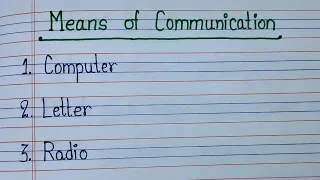 Means of Communication
1. Computer
2. Letter
3. Radio